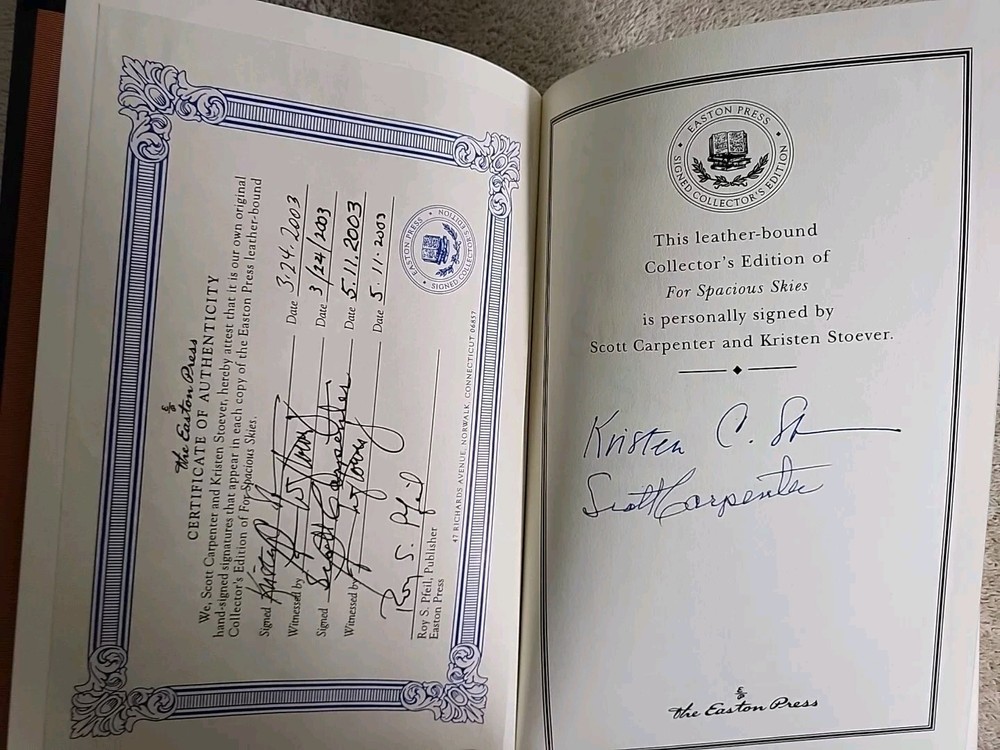 the Easton Press
CERTIFICATE OF AUTHENTICITY
We, Scott Carpenter and Kristen Stoever, hereby attest that it is our own original
hand-signed signatures that appear in each copy of the Easton Press leather-bound
Collector's Edition of For Spacious Skies.
Signed Date 3.24.2003
Witnessed by Date 3/24/2003
Signed Scott Carpenter Date 5.11.2003
Witnessed by Date 5.11.2003
Roy S. Pfeil
Roy S. Pfeil, Publisher
Easton Press
EASTON PRESS
SIGNED COLLECTOR'S EDITION
47 RICHARDS AVENUE, NORWALK, CONNECTICUT 06857
EASTON PRESS
SIGNED COLLECTOR'S EDITION
This leather-bound
Collector's Edition of
For Spacious Skies
is personally signed by
Scott Carpenter and Kristen Stoever.
Kristen C. St
Scott Carpenter
the Easton Press